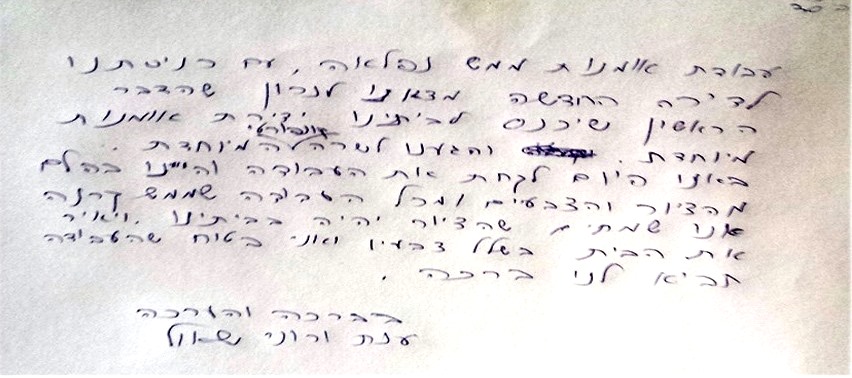 בס"ד
עבודת אומנות ממש נפלאה, עם כניסתנו
לדירה החדשה מצאנו לנכון שהדבר
הראשון שיכנס לביתינו יצירת אומנות
מיוחדת. והגענו לשרה'לה המיוחדת.
באנו היום לקחת את העבודה והיינו בהלם
מהציור והצבעים ומכל העבודה שממש
אנו שמחים שהציור יהיה בביתינו. ויאיר
את הבית בשלל צבעיו ואני בטוח שהעבודה
תביא לנו ברכה.
בברכה והערכה
ענת ורוני שאול